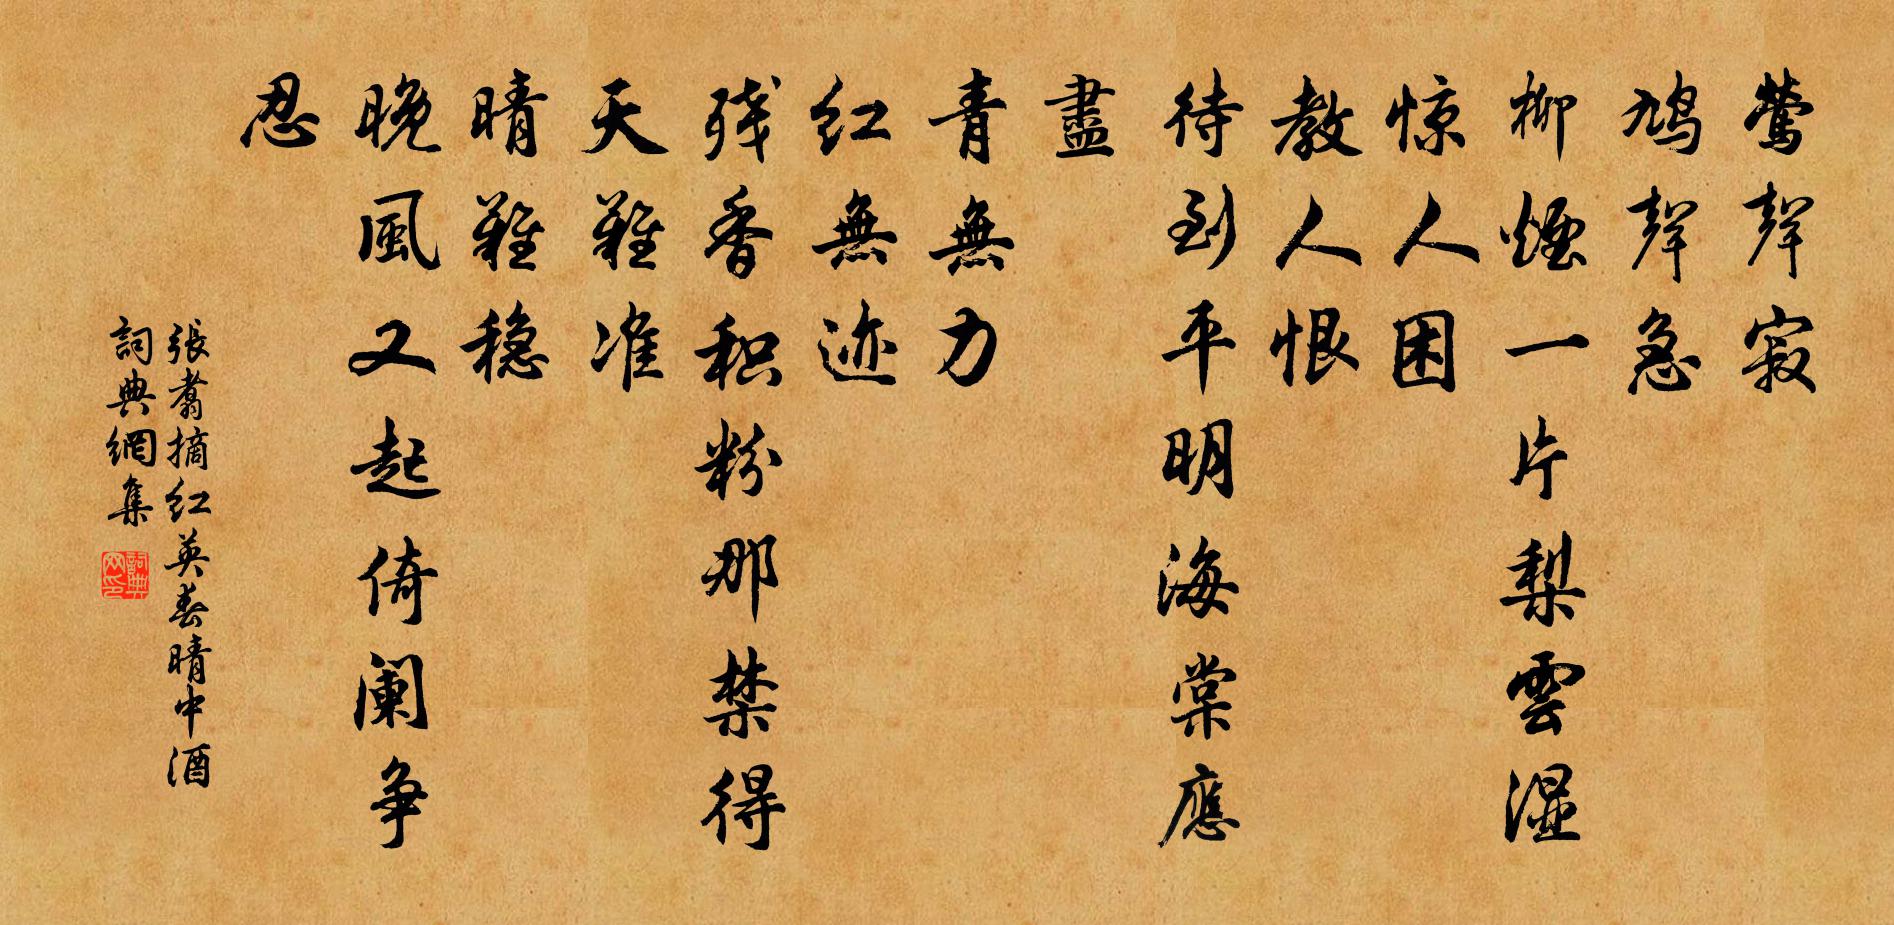 鶯聲寂
鳩聲急
柳煙一片梨雲湿
惊人困
教人恨
待到平明海棠應
盡
青無力
红無迹
残香积粉那禁得
天難准
晴難稳
晚風又起倚阑争
忍
張翥摘红英春晴中酒
詞典網集
詞典网印